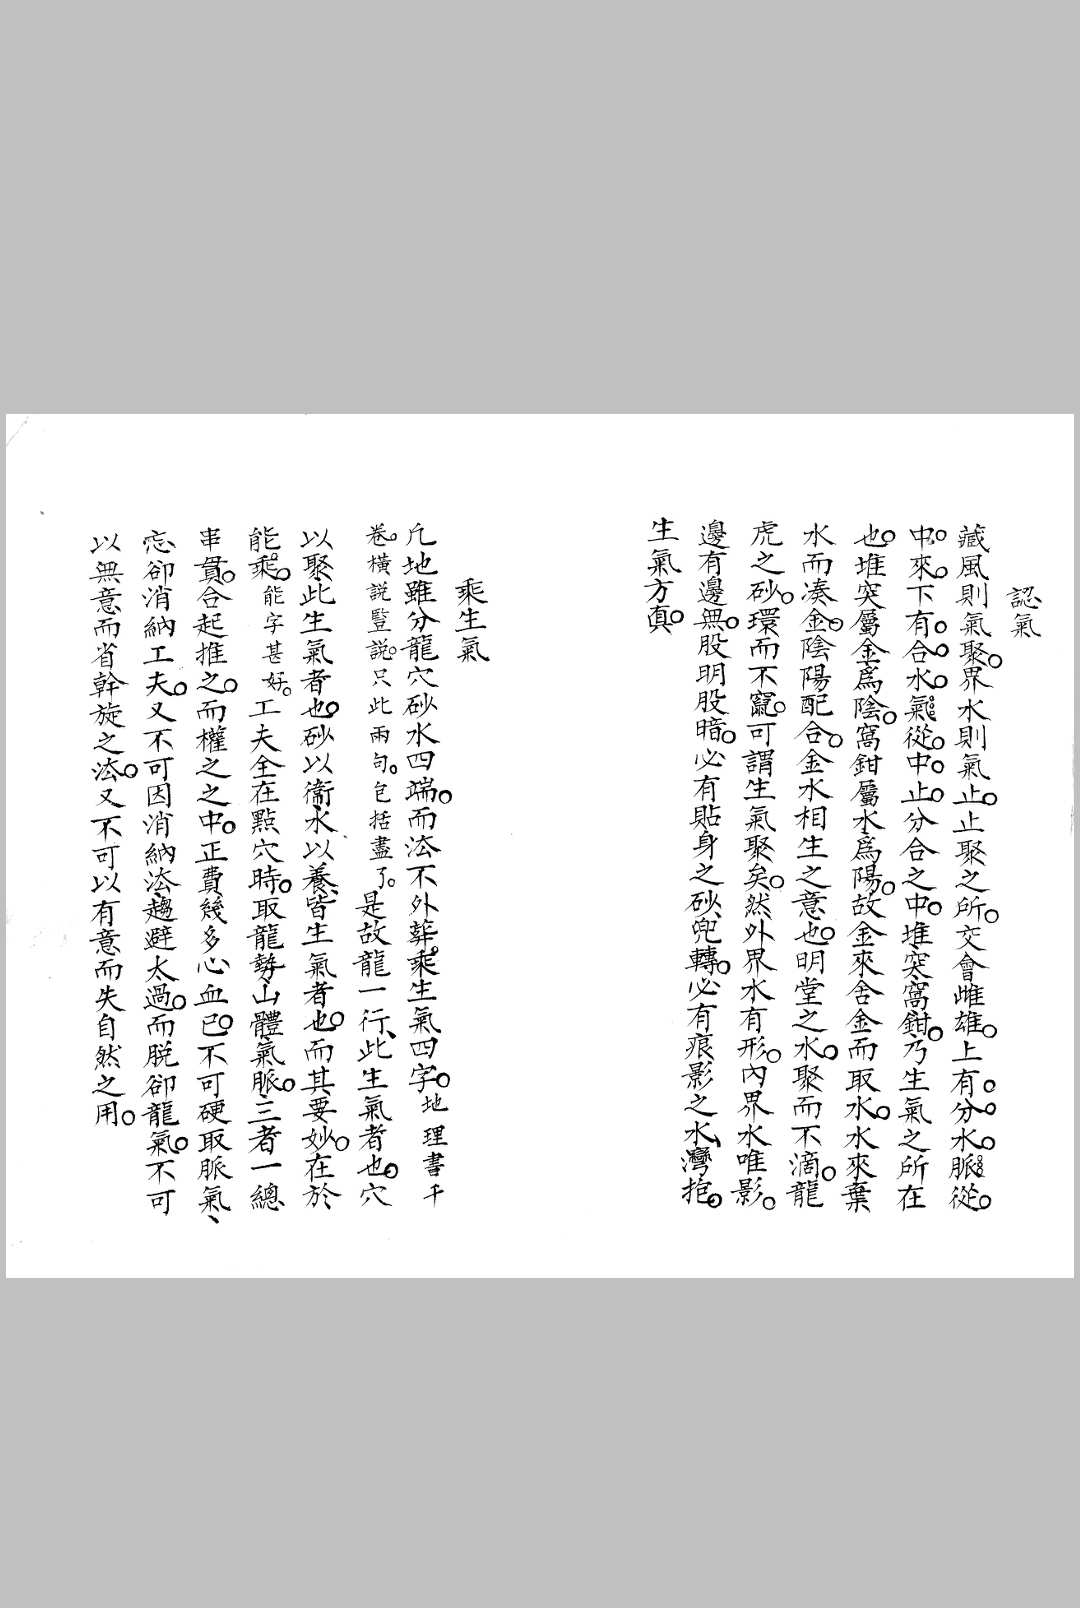 認氣
藏風則氣聚。界水則氣止。止聚之所。交會雌雄。上有。分。水。脈從。
中。來。下有。合。水。氣從。中。止。分合之中。堆突窩鉗。乃生氣之所在
也。堆突屬金爲陰。窩鉗屬水爲陽。故金來舍金而取水。水來棄
水而湊金。陰陽配合。金水相生之意也。明堂之水。聚而不滴。龍
虎之砂。環而不竄。可謂生氣聚矣。然外界水有形。內界水唯影。
邊有邊無。股明股暗。必有貼身之砂、兜轉。必有痕影之水、灣抱。
生氣方眞。
乘生氣
凡地雖分龍穴砂水四端。而法不外葬。乘生氣四字。地理書千
卷。橫説豎説。只此兩句。包括盡了。是故龍一行、此生氣者也。穴
以聚此生氣者也。砂以衞、水以養、皆生氣者也。而其要妙。在於
能乘。能字甚好。工夫全在點穴時。取龍勢、山體、氣脈。三者一總
串貫。合起推之。而權之之中。正費幾多心血已。不可硬取脈氣、
忘卻消納工夫。又不可因消納法、趨避太過。而脫卻龍氣。不可
以無意而省幹旋之法。又不可以有意而失自然之用。